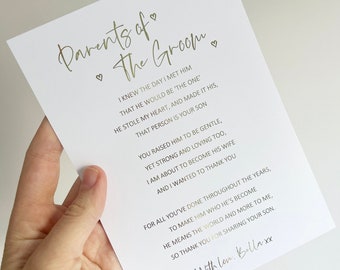 Parents of
the Groom
I KNEW THE DAY I MET HIM
THAT HE WOULD BE "THE ONE"
HE STOLE MY HEART, AND MADE IT HIS,
THAT PERSON IS YOUR SON
YOU RAISED HIM TO BE GENTLE,
YET STRONG AND LOVING TOO,
I AM ABOUT TO BECOME HIS WIFE
AND I WANTED TO THANK YOU
FOR ALL YOU'VE DONE THROUGHOUT THE YEARS,
TO MAKE HIM WHO HE'S BECOME
HE MEANS THE WORLD AND MORE TO ME,
SO THANK YOU FOR SHARING YOUR SON.
With love, Bella xx